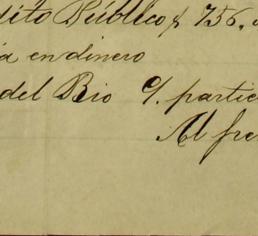 dito Público $ 756.
a en dinero
del Bio c/. partic
Al fre